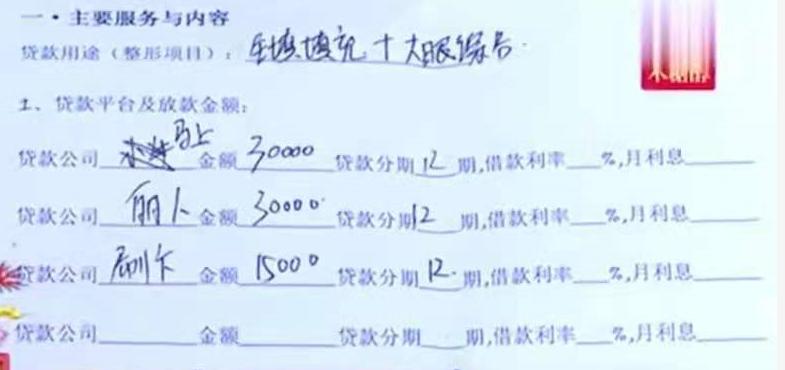 一·主要服务与内容
贷款用途（整形项目）：填充十大眼综合
1、贷款平台及放款金额：
贷款公司 马上 金额 30000 贷款分期 12 期,借款利率___%,月利息______
贷款公司 丽人 金额 30000 贷款分期 12 期,借款利率___%,月利息______
贷款公司 刷卡 金额 15000 贷款分期 12 期,借款利率___%,月利息______
贷款公司______金额______贷款分期___期,借款利率___%,月利息______